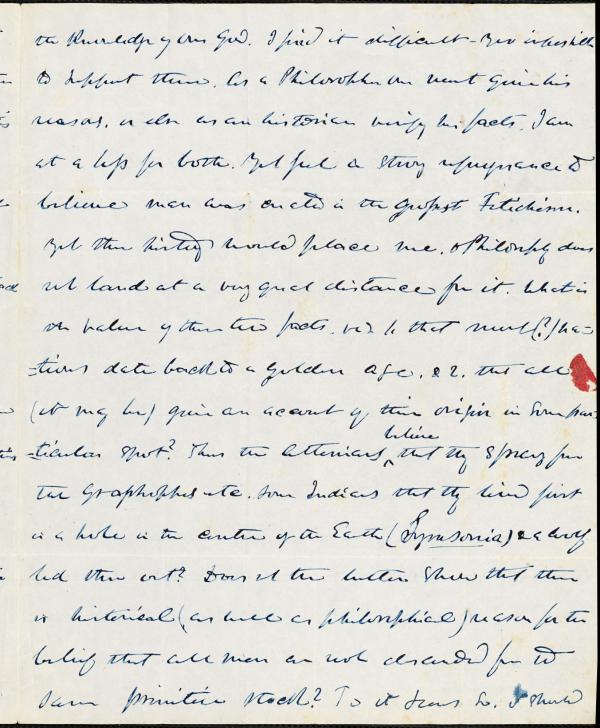 the Knowledge of one God. I find it difficult - yes impossible
to support them. As a Philosopher one must give his
reasons, or else as an historian verify his facts. I am
at a loss for both. Yet feel a strong repugnance to
believe man was created in the grossest Fetichism.
Yet there history would place me, & Philosophy does
not land at a very great distance from it. What is
the value of these two facts. viz 1. that most (?) na=
=tions date back to a golden age, & 2. that all
(it may be) give an account of their origin in some par
=ticular spot? Thus the Athenians believe that they sprang from
the Grasshoppers etc. some Indians that they lived first
in a hole in the centre of the Earth (Symsonia) & a wolf
led them out? Does not the latter show that there
is historical (as well as philosophical) reason for the
belief that all men are not descended from the
same primitive stock? To it seems so. I should